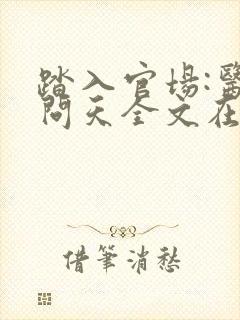 踏入官場:醫
問天全文在
借筆消愁